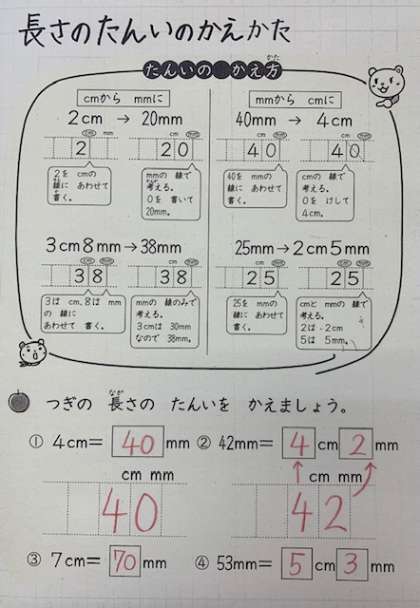 長さのたんいのかえかた
たんいの かえ方
かた
cmから mmに
mmから cmに
2cm → 20mm
40mm → 4cm
cm mm
2
cm mm
20
cm mm
40
cm mm
40
2を cmの
線に あわせて
書く。
mmの 線で
考える。
0を 書いて
20mm。
40を mmの
線に あわせて
書く。
cmの 線で
考える。
0を けして
4cm。
3cm8mm→38mm
25mm→2cm5mm
cm mm
38
cm mm
38
cm mm
25
cm mm
25
3は cm、8は mm
の 線に
あわせて 書く。
mmの 線のみで
考える。
3cmは 30mm
なので 38mm。
25を mmの
線に あわせて
書く。
cmと mmの 線で
考える。
2は 2cm
5は 5mm。
つぎの 長さの たんいを かえましょう。
なが
① 4cm=40mm
② 42mm=4cm2mm
cm mm
40
cm mm
42
③ 7cm=70mm
④ 53mm=5cm3mm